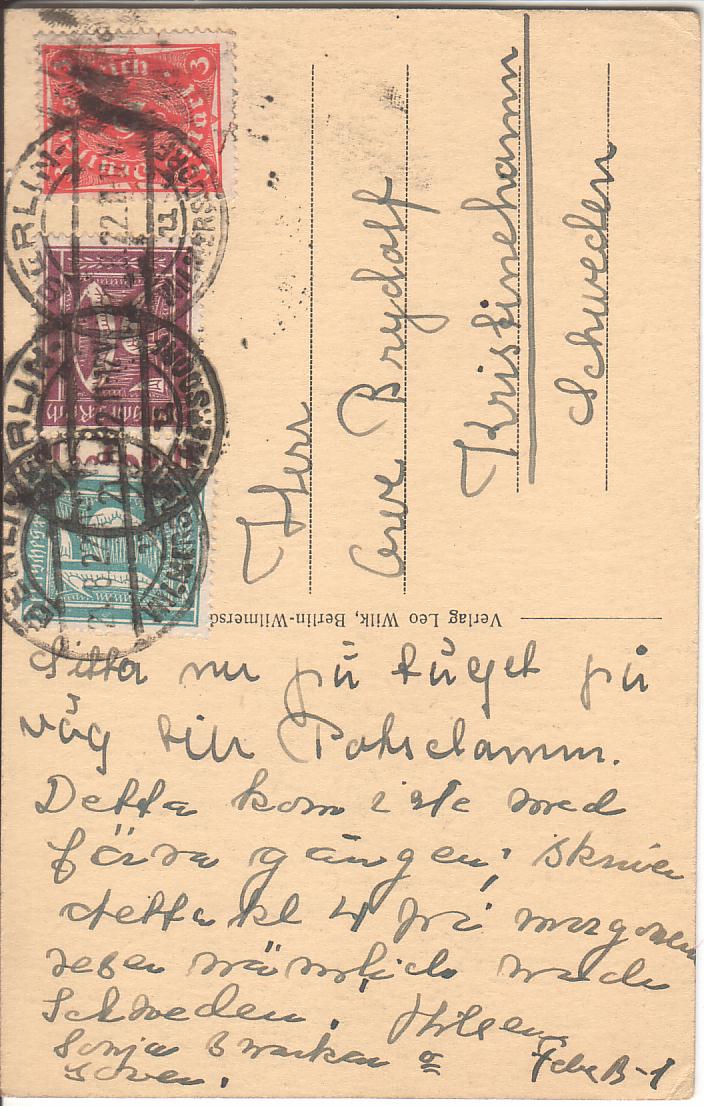 Herr
Arve Brydolf
Kristinehamn
Schweden
Verlag Leo Wilk, Berlin-Wilmersd
Sitta nu på tåget på
väg till Pohsdamm.
Detta kom iste med
förra gången, skriver
detta kl 4 på morgonen
resen nämlich nach
Schweden. Hilsen
Sonja
BERLIN-
WILMERSDORF
3
Deutsches Reich